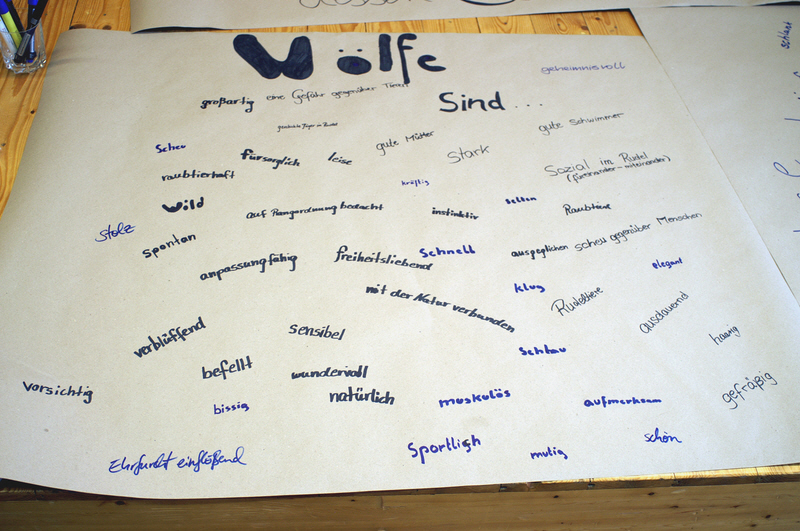 Wölfe
geheimnisvoll
großartig
eine Gefahr gegenüber Tieren
Sind ...
geschickte Jäger im Rudel
gute Schwimmer
Scheu
gute Mütter
fürsorglich
leise
Stark
raubtierhaft
kräftig
Sozial im Rudel
(füreinander - miteinander)
Wild
auf Rangordnung bedacht
instinktiv
selten
Raubtiere
stolz
spontan
anpassungfähig
freiheitsliebend
Schnell
ausgeglichen
scheu gegenüber Menschen
elegant
mit der Natur verbunden
klug
Rudeltiere
ausdauernd
verblüffend
sensibel
haarig
befellt
wundervoll
Schlau
vorsichtig
bissig
natürlich
muskulös
aufmerksam
gefräßig
Ehrfurcht einflößend
Sportlich
mutig
schön
schlant